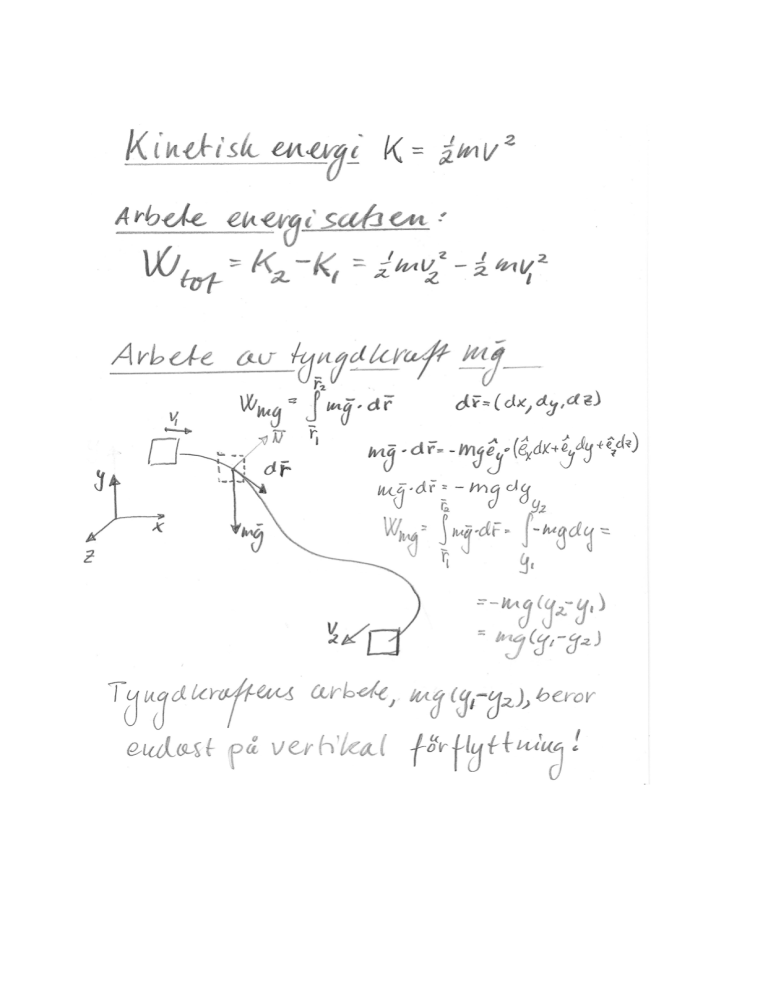 Kinetisk energi K = ½mv²
Arbete energisatsen:
W_tot = K₂ - K₁ = ½mv₂² - ½mv₁²
Arbete av tyngdkraft mḡ
W_mg = ∫_r̄₁^r̄₂ mḡ · dr̄ dr̄ = (dx, dy, dz)
v₁
N̄
mḡ · dr̄ = -mgê_y · (ê_x dx + ê_y dy + ê_z dz)
dr̄
mḡ · dr̄ = -mg dy
y
W_mg = ∫_r̄₁^r̄₂ mḡ · dr̄ = ∫_y₁^y₂ -mg dy =
x
mḡ
z
= -mg(y₂ - y₁)
v₂
= mg(y₁ - y₂)
Tyngdkraftens arbete, mg(y₁-y₂), beror
endast på vertikal förflyttning!